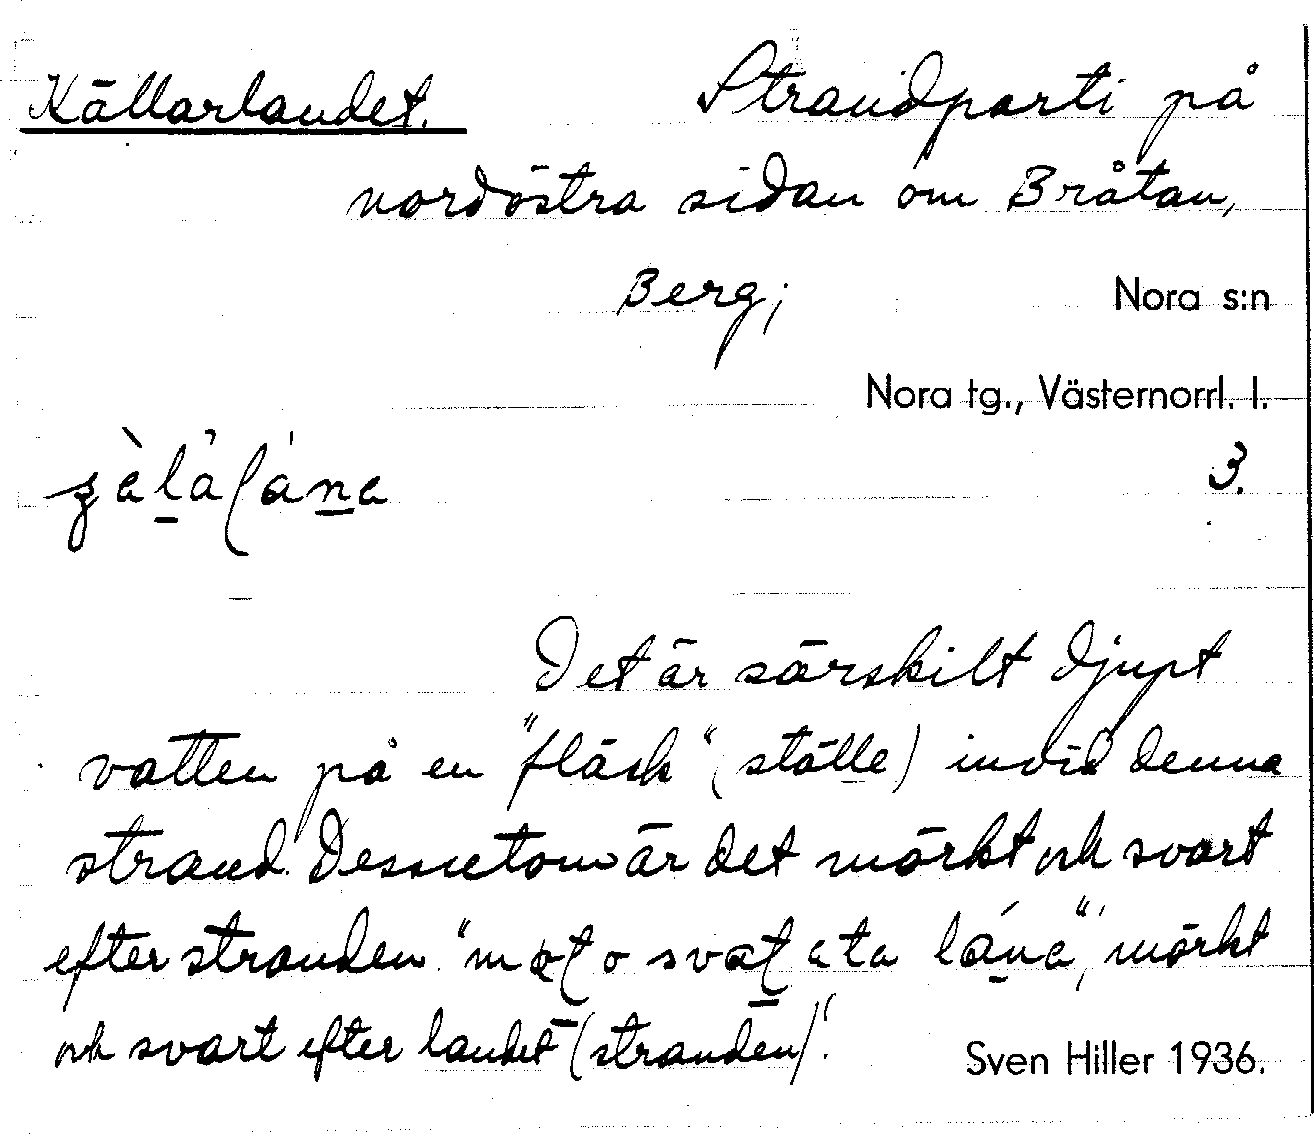 Källarlandet. Strandparti på
nordöstra sidan om Bråtan,
Berg;
Nora s:n
Nora tg., Västernorrl. l.
3.
Det är särskilt djupt
vatten på en "fläck" (ställe) invid denna
strand. Dessutom är det mörkt och svart
efter stranden. mörkt
och svart efter landet (stranden)".
Sven Hiller 1936.